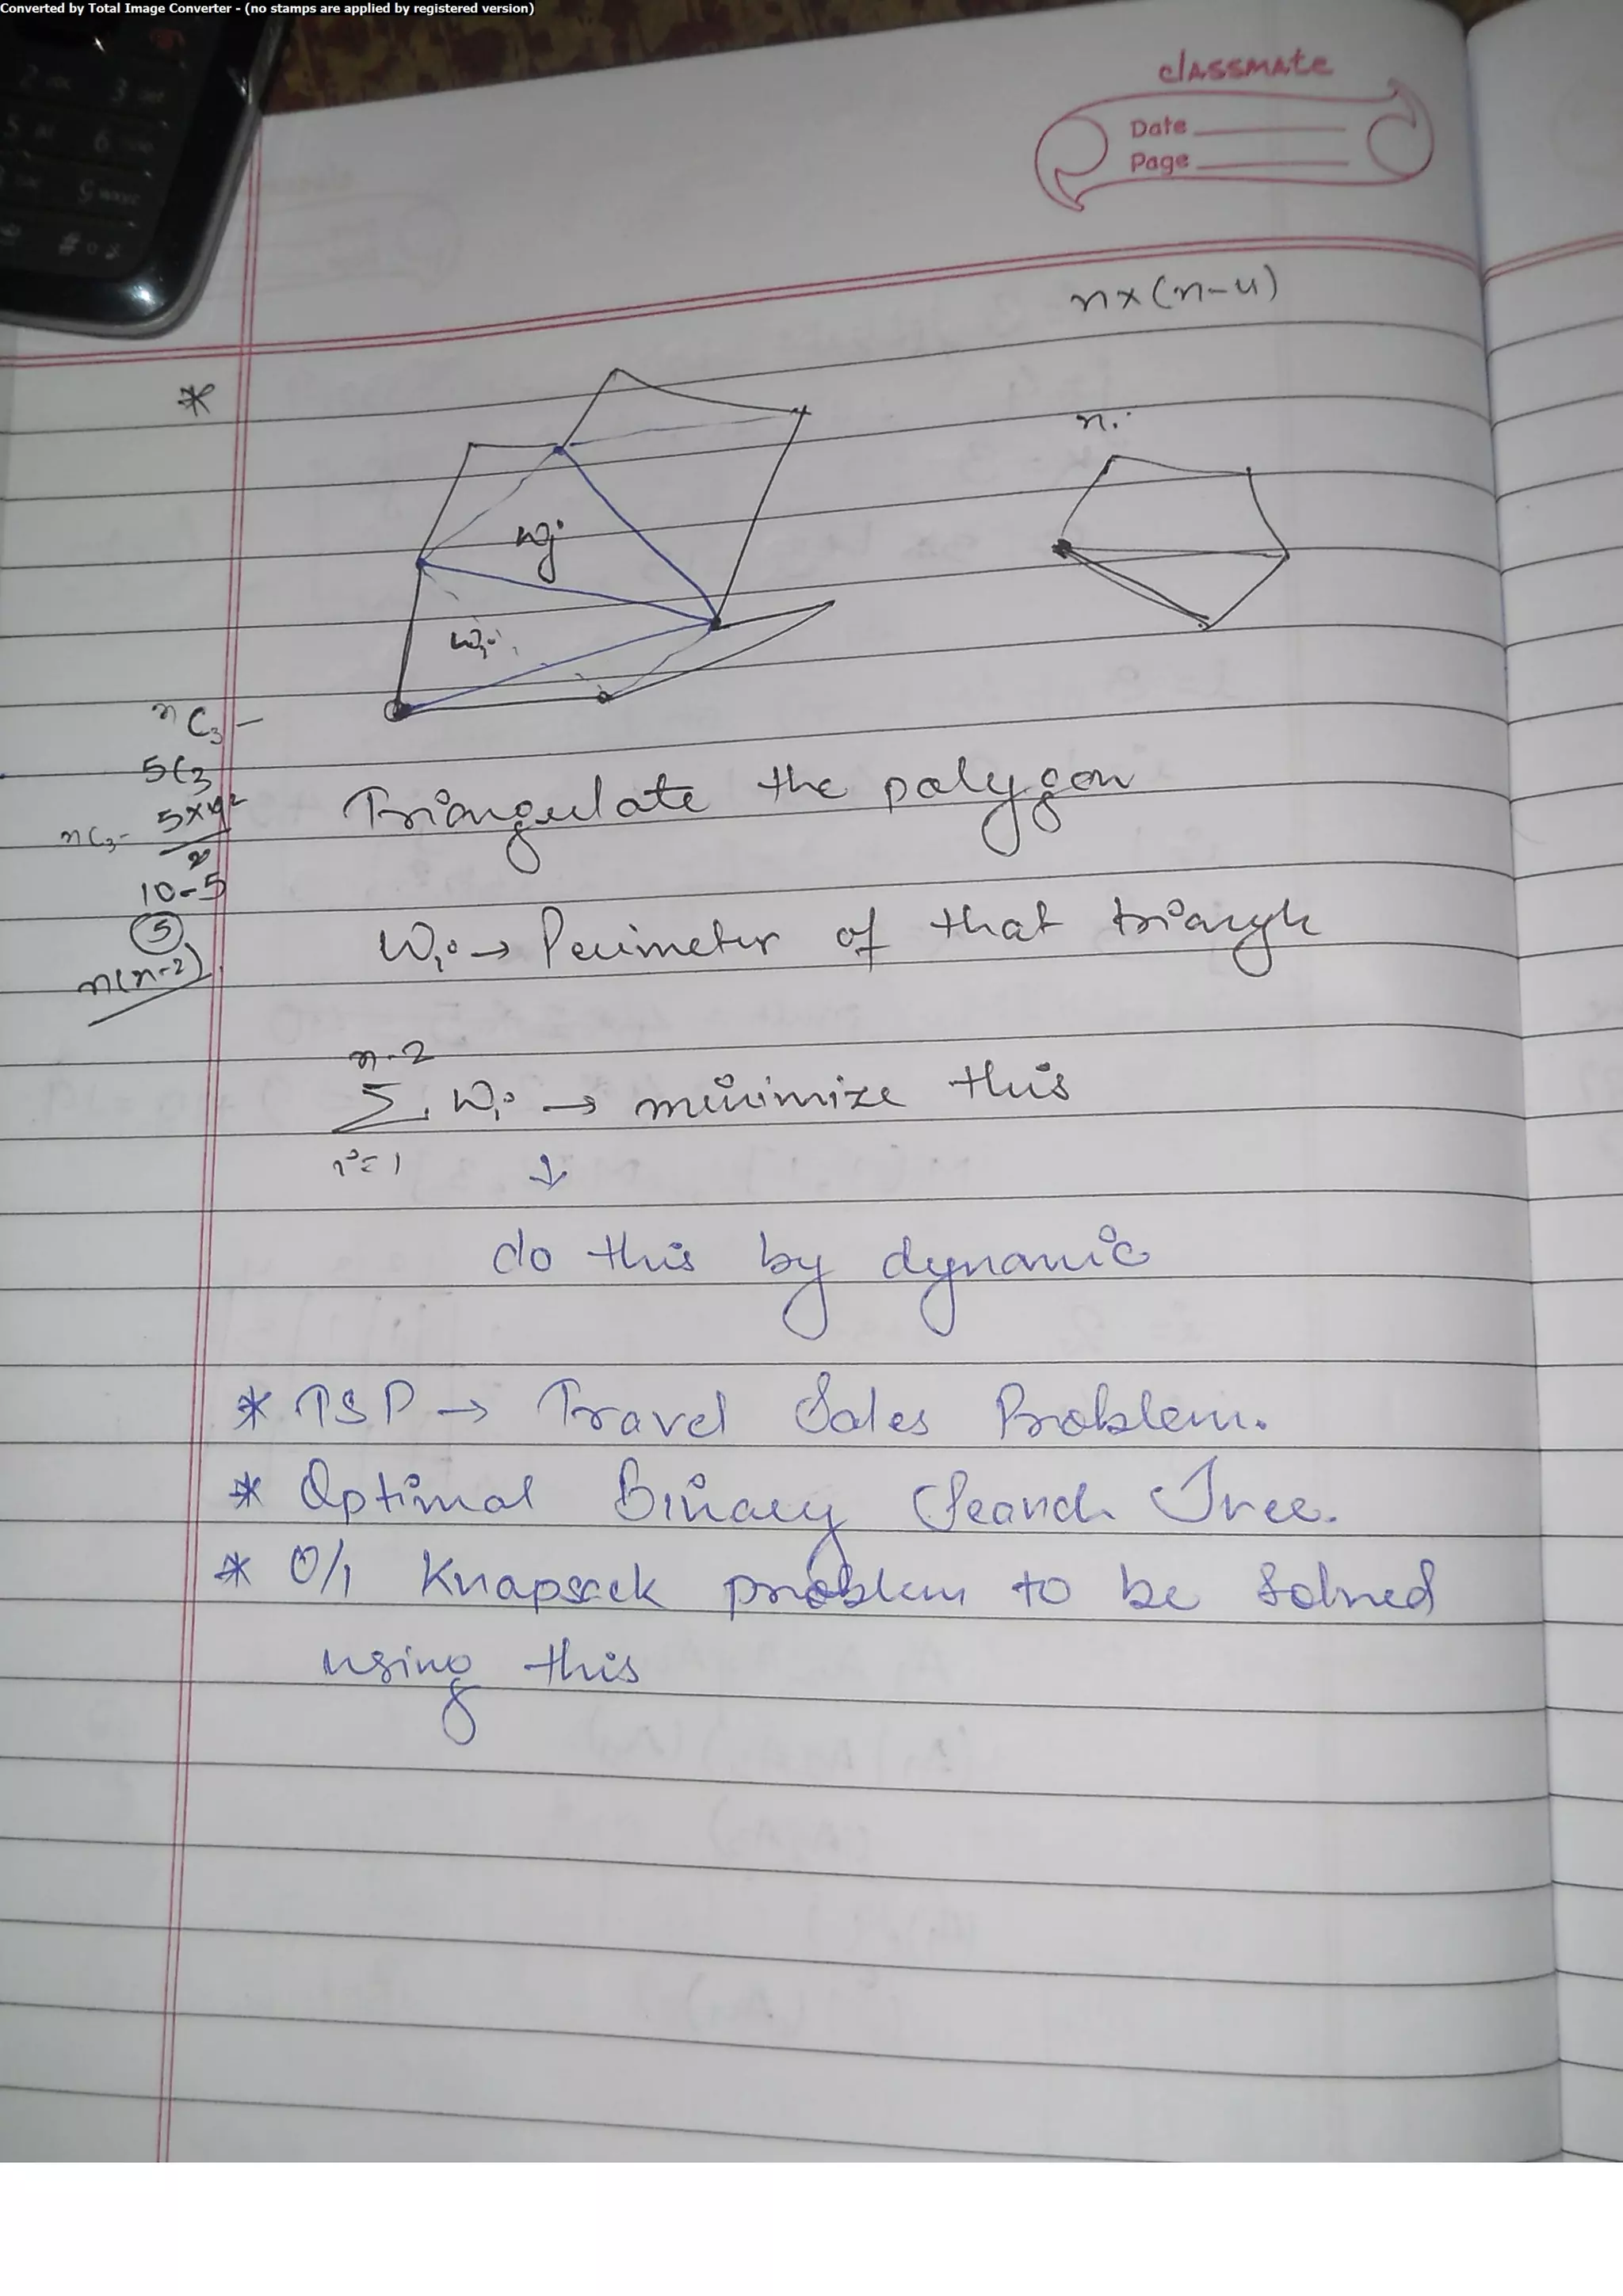 Converted by Total Image Converter - (no stamps are applied by registered version)
classmate
Date
Page
n×(n-4)
*
n.
wj
wi
nC3 -
5C3
nC3 - 5×4 2
2
10-5
5
n(n-2)
Triangulate the polygon
Wi → Perimeter of that triangle
n-2
Σ Wi → minimize this
i=1 ↓
do this by dynamic
* TSP → Travel Sales Problem.
* Optimal Binary Search Tree.
* 0/1 Knapsack problem to be solved
using this